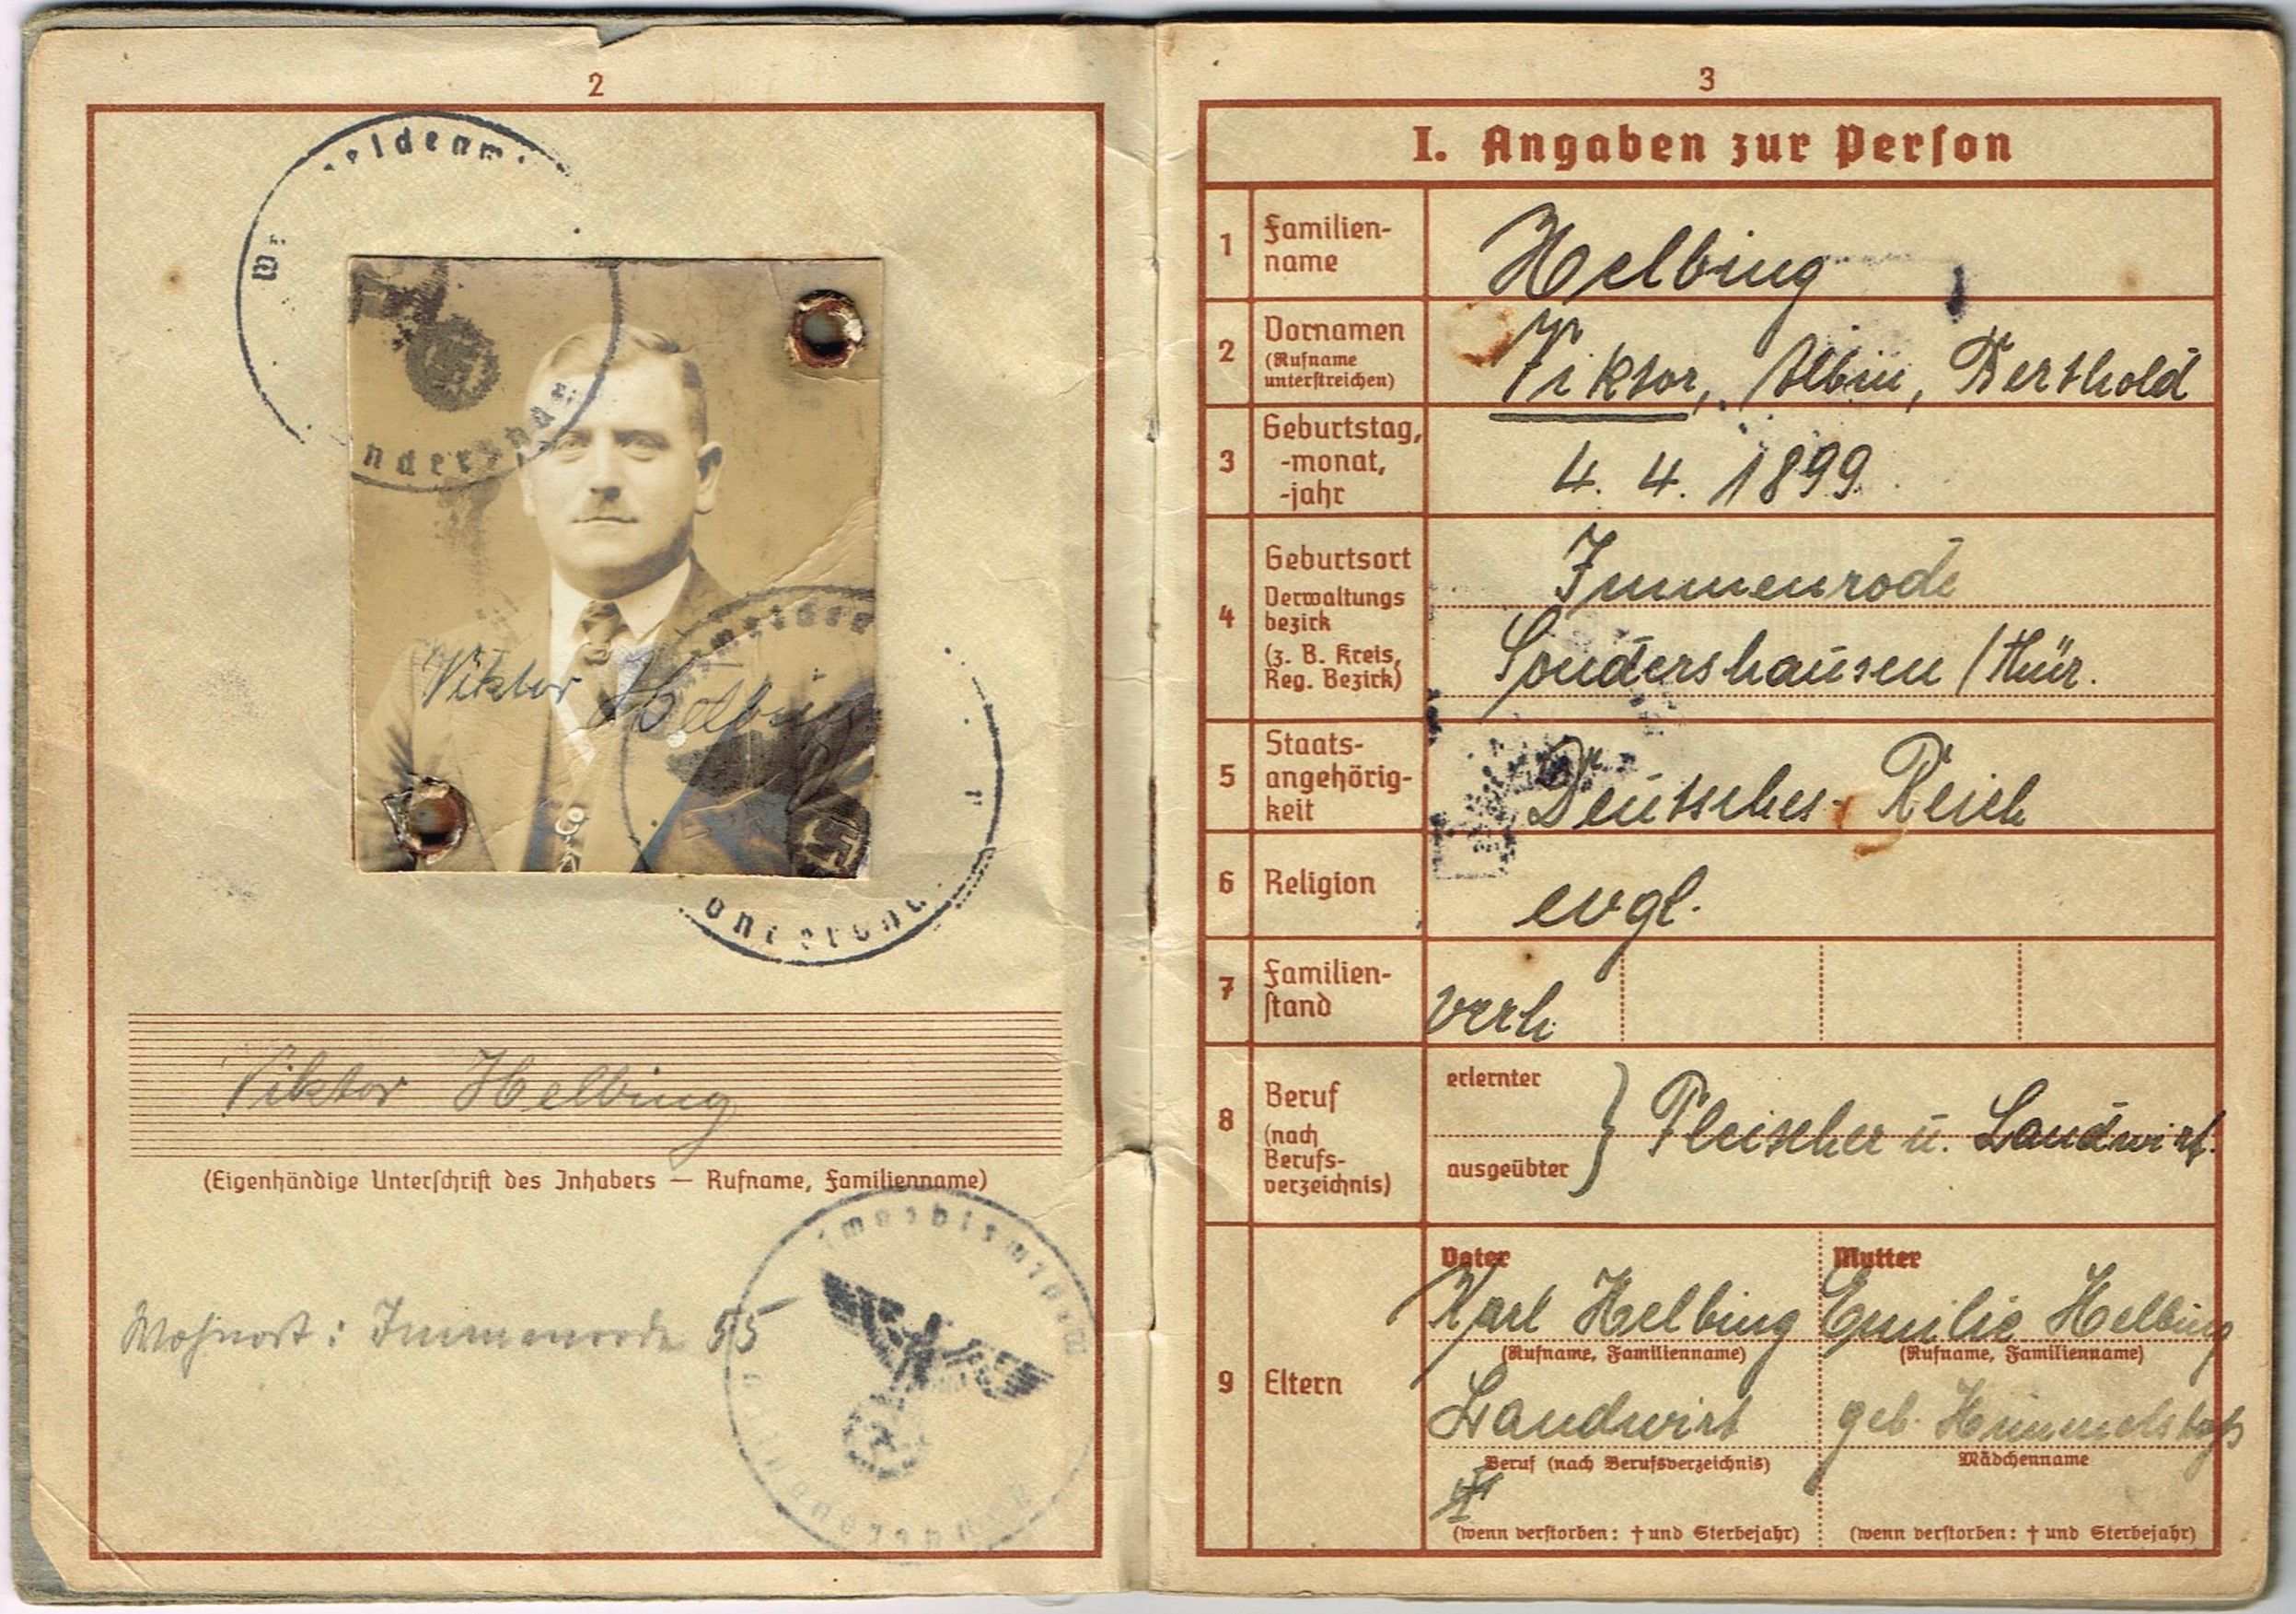 2
Viktor Helbing
Viktor Helbing
(Eigenhändige Unterſchrift des Inhabers — Rufname, Familienname)
Wohnort: Immenrode 55
3
I. Angaben zur Perſon
1 Familien-
name
Helbing
2 Vornamen
(Rufname
unterſtreichen)
Viktor, Albin, Berthold
3 Geburtstag,
-monat,
-jahr
4. 4. 1899.
4 Geburtsort
Verwaltungs
bezirk
(z. B. Kreis,
Reg. Bezirk)
Immenrode
Sondershausen / Thür.
5 Staats-
angehörig-
keit
Deutsches-Reich
6 Religion
evgl.
7 Familien-
ſtand
verh
8 Beruf
(nach
Berufs-
verzeichnis)
erlernter
ausgeübter
} Fleischer u. Landwirt.
9 Eltern
Vater
Karl Helbing
(Rufname, Familienname)
Landwirt
Beruf (nach Berufsverzeichnis)
(wenn verſtorben: † und Sterbejahr)
Mutter
Emilie Helbing
(Rufname, Familienname)
geb.
Mädchenname
(wenn verſtorben: † und Sterbejahr)